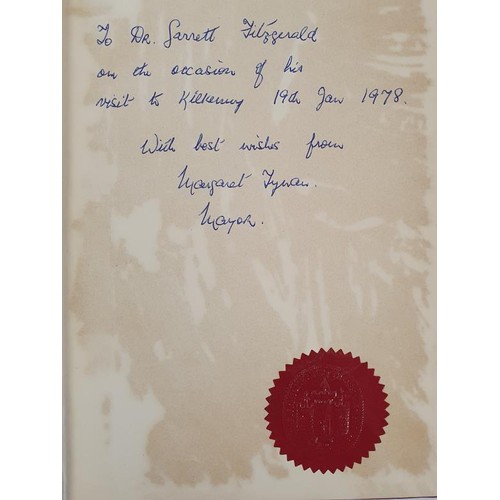 To Dr. Garrett Fitzgerald
on the occasion of his
visit to Kilkenny 19th Jan 1978.
With best wishes from
Margaret Tynan.
Mayor.